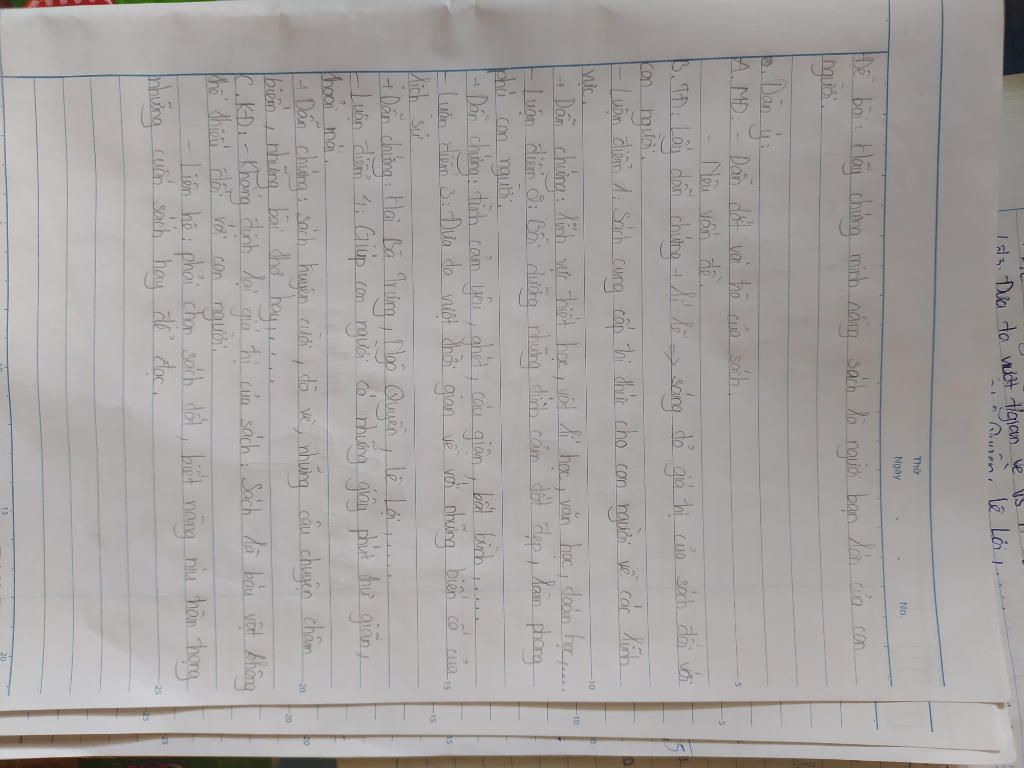 Thứ
Ngày . . No.
Đề bài: Hãy chứng minh rằng sách là người bạn lớn của con
người.
* Dàn ý:
A. MB: - Dẫn dắt vai trò của sách.
- Nêu vấn đề.
B. TB: lấy dẫn chứng + lí lẽ => sáng tỏ giá trị của sách đối với
con người.
- Luận điểm 1: Sách cung cấp tri thức cho con người về các lĩnh
vực.
→ Dẫn chứng: lĩnh vực triết học, vật lí học, văn học, toán học,.....
- Luận điểm 2: Bồi dưỡng những tình cảm tốt đẹp, làm phong
phú con người.
→ Dẫn chứng: tình cảm yêu, ghét, căm giận, bất bình,.....
- Luận điểm 3: Đưa ta vượt thời gian về với những biến cố của
lịch sử.
→ Dẫn chứng: Hai Bà Trưng, Ngô Quyền, Lê Lợi,.....
- Luận điểm 4: Giúp con người có những giây phút thư giãn,
thoải mái.
→ Dẫn chứng: sách truyện cười, tô vẽ, những câu chuyện châm
biếm, những bài thơ hay,.....
C. KB: - Khẳng định lại giá trị của sách: Sách là báu vật không
thể thiếu đối với con người.
- Liên hệ: phải chọn sách tốt, biết nâng niu trân trọng
những cuốn sách hay để đọc.
5
10
15
20
25
5
10
15
20
25
10
15
20
Đưa ta vượt thời gian về với
Quyền, Lê Lợi,.....